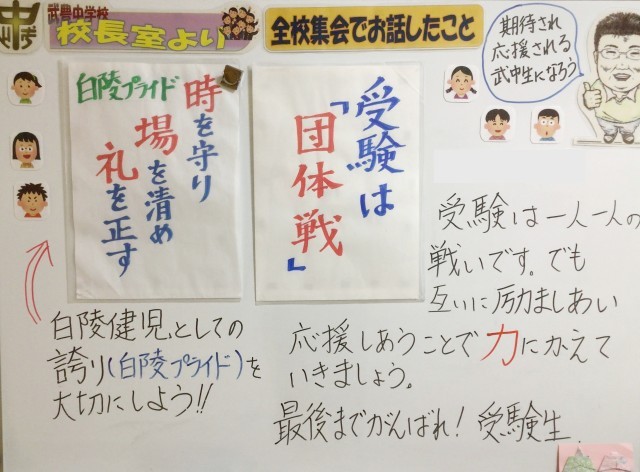 武豊中学校
校長室より
全校集会でお話したこと
期待され
応援される
武中生になろう
白陵プライド
時を守り
場を清め
礼を正す
受験は
「団体戦」
受験は一人一人の
戦いです。でも
互いに励ましあい
応援しあうことで力にかえて
いきましょう。
最後までがんばれ!受験生.
白陵健児としての
誇り(白陵プライド)を
大切にしよう!!